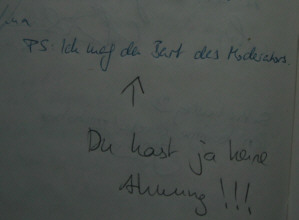 PS: Ich mag den Bart des Moderators.
Du hast ja keine
Ahnung!!!